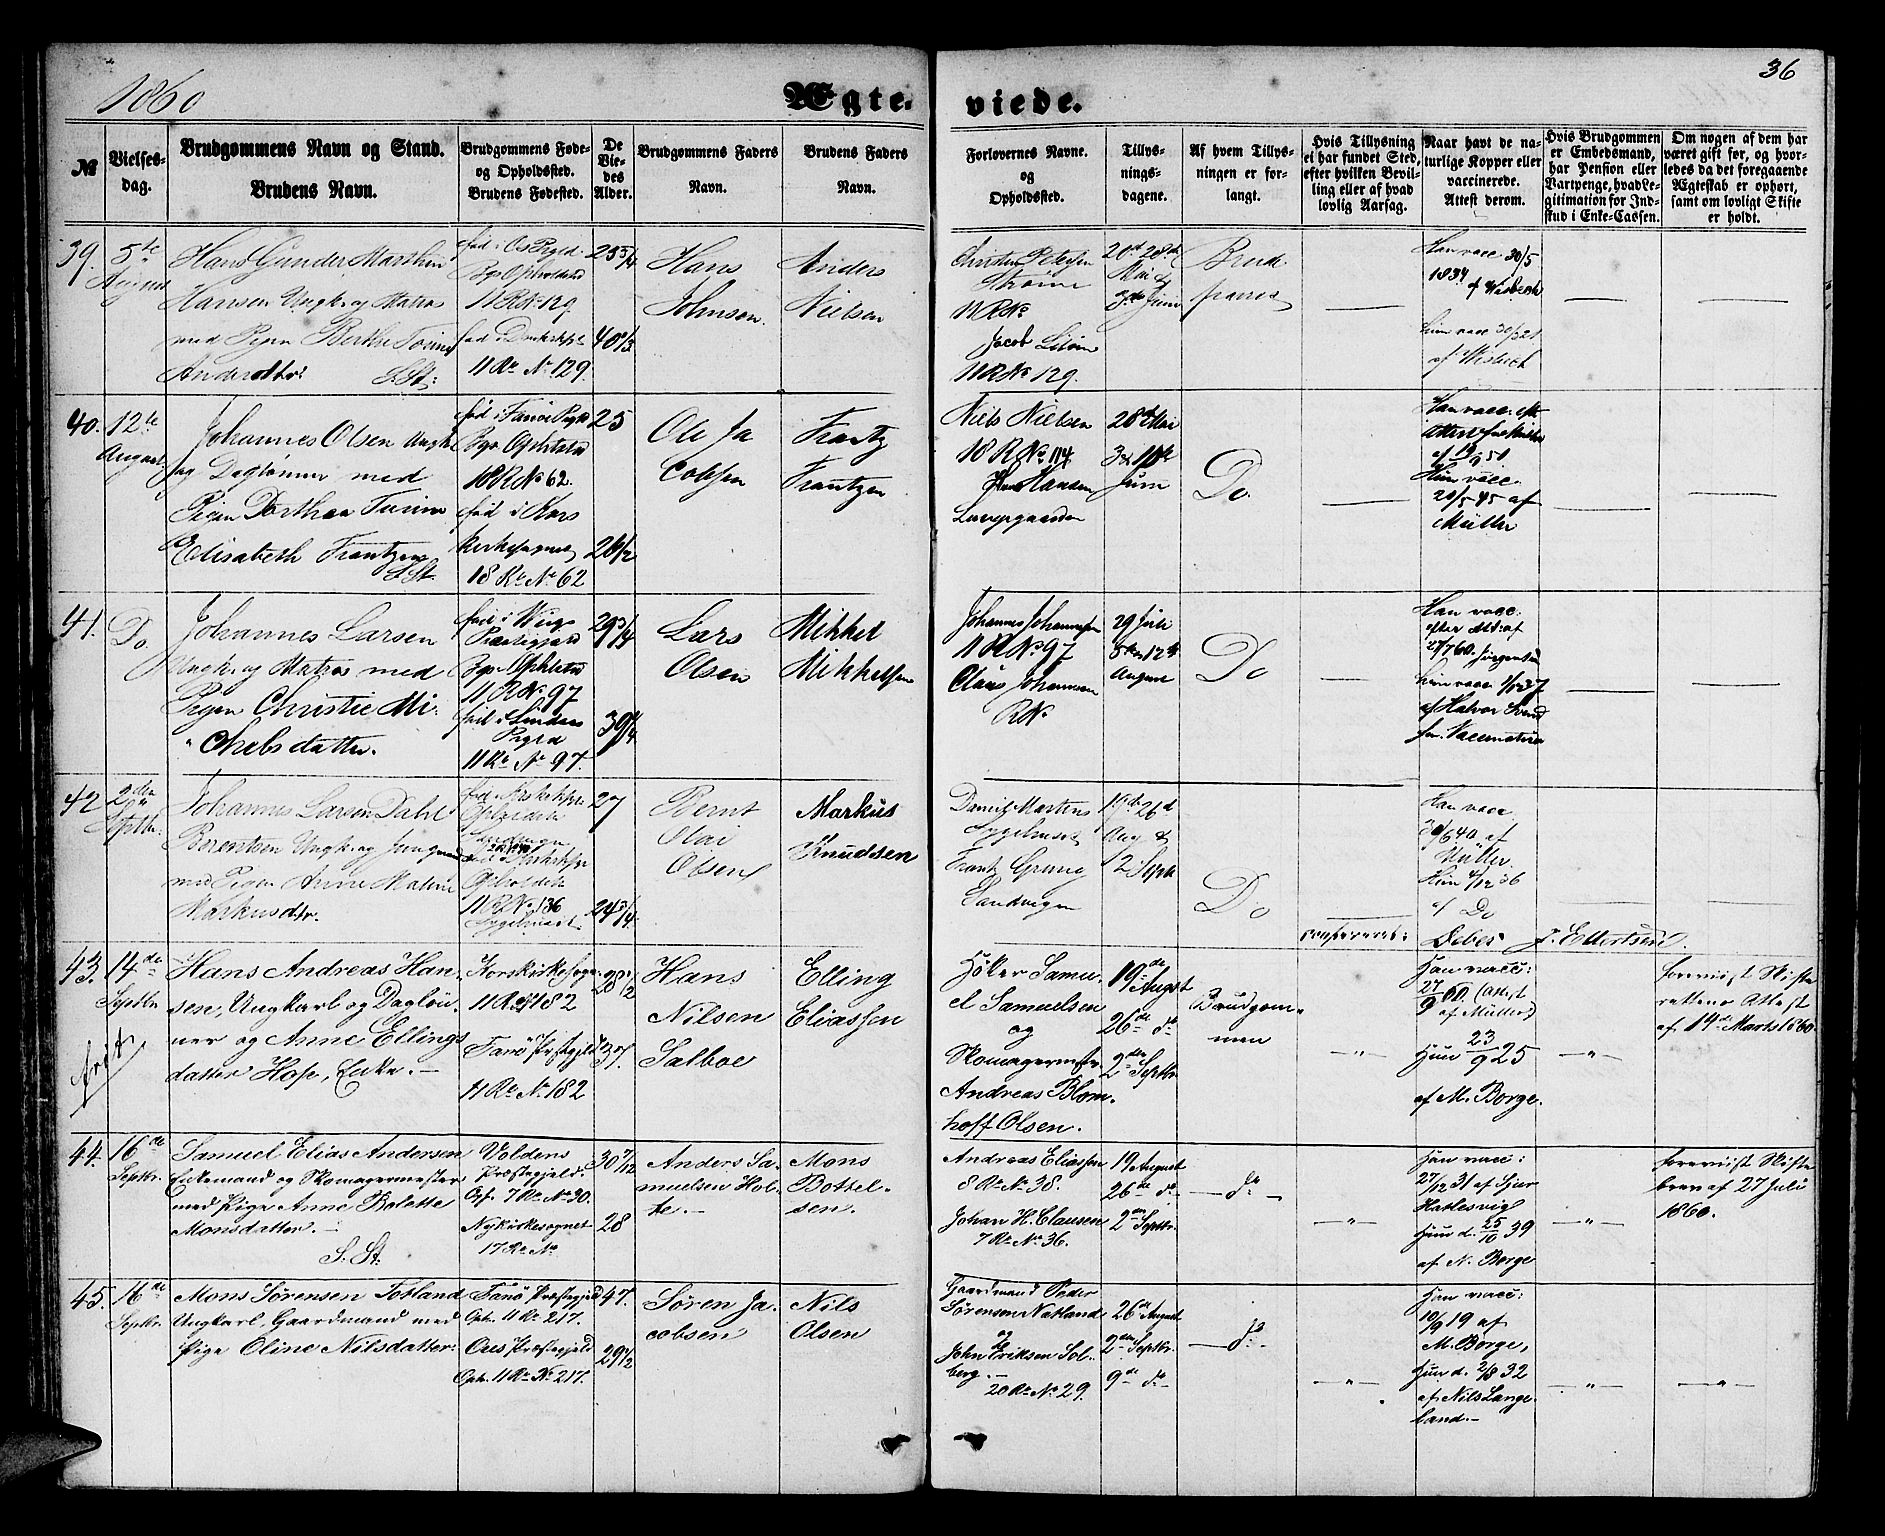 1860
Ægte-
viede.
36
№
Vielses-
dag.
Brudgommens Navn og Stand.
Brudens Navn.
Brudgommens Føde-
og Opholdssted.
Brudens Fødested.
De
Vie-
des
Alder.
Brudgommens Faders
Navn.
Brudens Faders
Navn.
Forlovernes Navne.
og
Opholdssted.
Tillys-
nings-
dagene.
Af hvem Tillys-
ningen er for-
langt.
Hvis Tillysning
ei har fundet Sted,
efter hvilken Bevil-
ling eller af hvad
lovlig Aarsag.
Naar havt de na-
turlige Kopper eller
vaccinerede.
Attest derom.
Hvis Brudgommen
er Embedsmand,
har Pension eller
Vartpenge, hvad Le-
gitimation for Ind-
skud i Enke-Cassen.
Om nogen af dem har
været gift før, og hvor-
ledes da det foregaaende
Ægteskab er ophørt,
samt om lovligt Skifte
er holdt.
39.
5te
August
Hans Gunder
Hansen Ungk. og Matros
med Pigen Berthe
Andersdtr. S. St.
11 R. No 129
11 Re No 129.
25 3/4
40 1/3
Hans
Johnson.
Anders
Nielsen
Christen Petersen
11 R No
Jacob
11 R No 129.
20de 28de
Mai &
3die Juni
Brud
parret
Han vacc 30/5
1834
af Wisbech
Hun vacc
af Wisbech
40.
12te
August
Johannes Olsen Ungk.
og Daglønner med
Pigen Dorthea
Elisabeth Frantzen
S. St.
fød i Fanø Pgd
18 R No 62.
fød i Kors
kirkesognet
18 Re No 62
25
26 1/2
Ole Ja
cobsen
Frantz
Frantzen
Niels Nielsen
18 R No 114
Hansen
Lungegaarden
28de Mai
3die
Juni
Do
Han vacc. eft
Hun vacc.
20/5 45 af
Müller
41.
Do
Johannes Larsen
Ungk. og Matros med
Pigen Christie Mi-
chelsdatter.
11 R No 97
fød i Lindaas
Pgd
11 Re No 97.
29 3/4
39 1/4
Lars
Olsen
Mikkel
Mikkelsen
Johannes Johannesen
11 R No 97
Claus Johannesen
R No
29 Juli
5te 12te
August
Do
Han vacc.
efter Att: af
27/7 60. Jørgensen
Hun vacc 37
af Halvor Svend
sen Vaccinatør
42
2den
Septbr.
Johannes Larsen Dahl
Berentsen Ungk. og Jungmand
med Pigen Anne Malene
Markusdtr.
11 R No 136
Sygehuset
27
24 3/4
Bernt
Olai
Olsen
Markus
Knudsen
Daniel Martens
Sygehuset
Frantz Grung
Sandvigen
19de 26d
Aug &
2 Septr
Do
Han vacc
30/6 40 af
Müller.
Hun 4/12 36
af Do
confereret:
Debes
J. Ellertsen.
43.
14de
Septbr.
frit
Hans Andreas Han-
sen, Ungkarl og Dagløn-
ner og Anne Ellings-
datter Hope, Enke.—
Korskirkesogn.
11 Re No 182
Fanø Præstegjeld
11 Re No 182
28 1/2
37.
Hans
Nilsen
Salboe
Elling
Eliassen
Høker Samu-
el Samuelsen
og
Skomagermester
Andreas Blom-
hoff Olsen.
19de August
26de do
2den Septbr.
Brudgom-
men
—"—
Han vacc:
27/9 60. (Attest
af Müller)
Hun 23/9 25
af M. Borge.
—"—
forevist Skifte
rettens Attest
af 14de Marts 1860.
44.
16de
Septbr.
Samuel Elias Andersen
Enkemand og Skomagermester
med Pige Anne Bolette
Monsdatter.—
S. St.
Voldens
Præstegjeld.
Oph. 7 Re No 30.
Nykirkesognet
17 Re No
30 7/12
28
Anders Sa-
muelsen Hol-
te.—
Mons
Bottel-
sen.
Andreas Eliassen
8 Re No 38.
Johan H. Clausen
7 Re No 36.
19 August
26de do
2den Septbr.
—do—
—"—
Han vacc:
27/12 31 af Sjur
Hatlesvig
Hun d. 25/10 39
af N. Borge
—"—
forevist Skifte
brev af 27 Juli
1860.
45.
16de
Septbr.
Mons Sørensen Totland
Ungkarl, Gaardmand med
Pige Oline Nilsdatter.
Fanø Præstegjeld
Oph. 11 Re 217.
Ous Præstegjeld
Oph. 11 Re No 217.
47.
29 1/2
Søren Ja-
cobsen
Nils
Olsen
Gaardmand Peder
Sørensen Natland
og
John Eriksen Sol-
berg.—
20 Re No 29.
26de August
2den Septbr.
9de do
—do—
—"—
Han vacc:
10/9 19 af
M. Borge,
Hun d. 2/8 32
af Nils Lange-
land.—
—"—
—"—